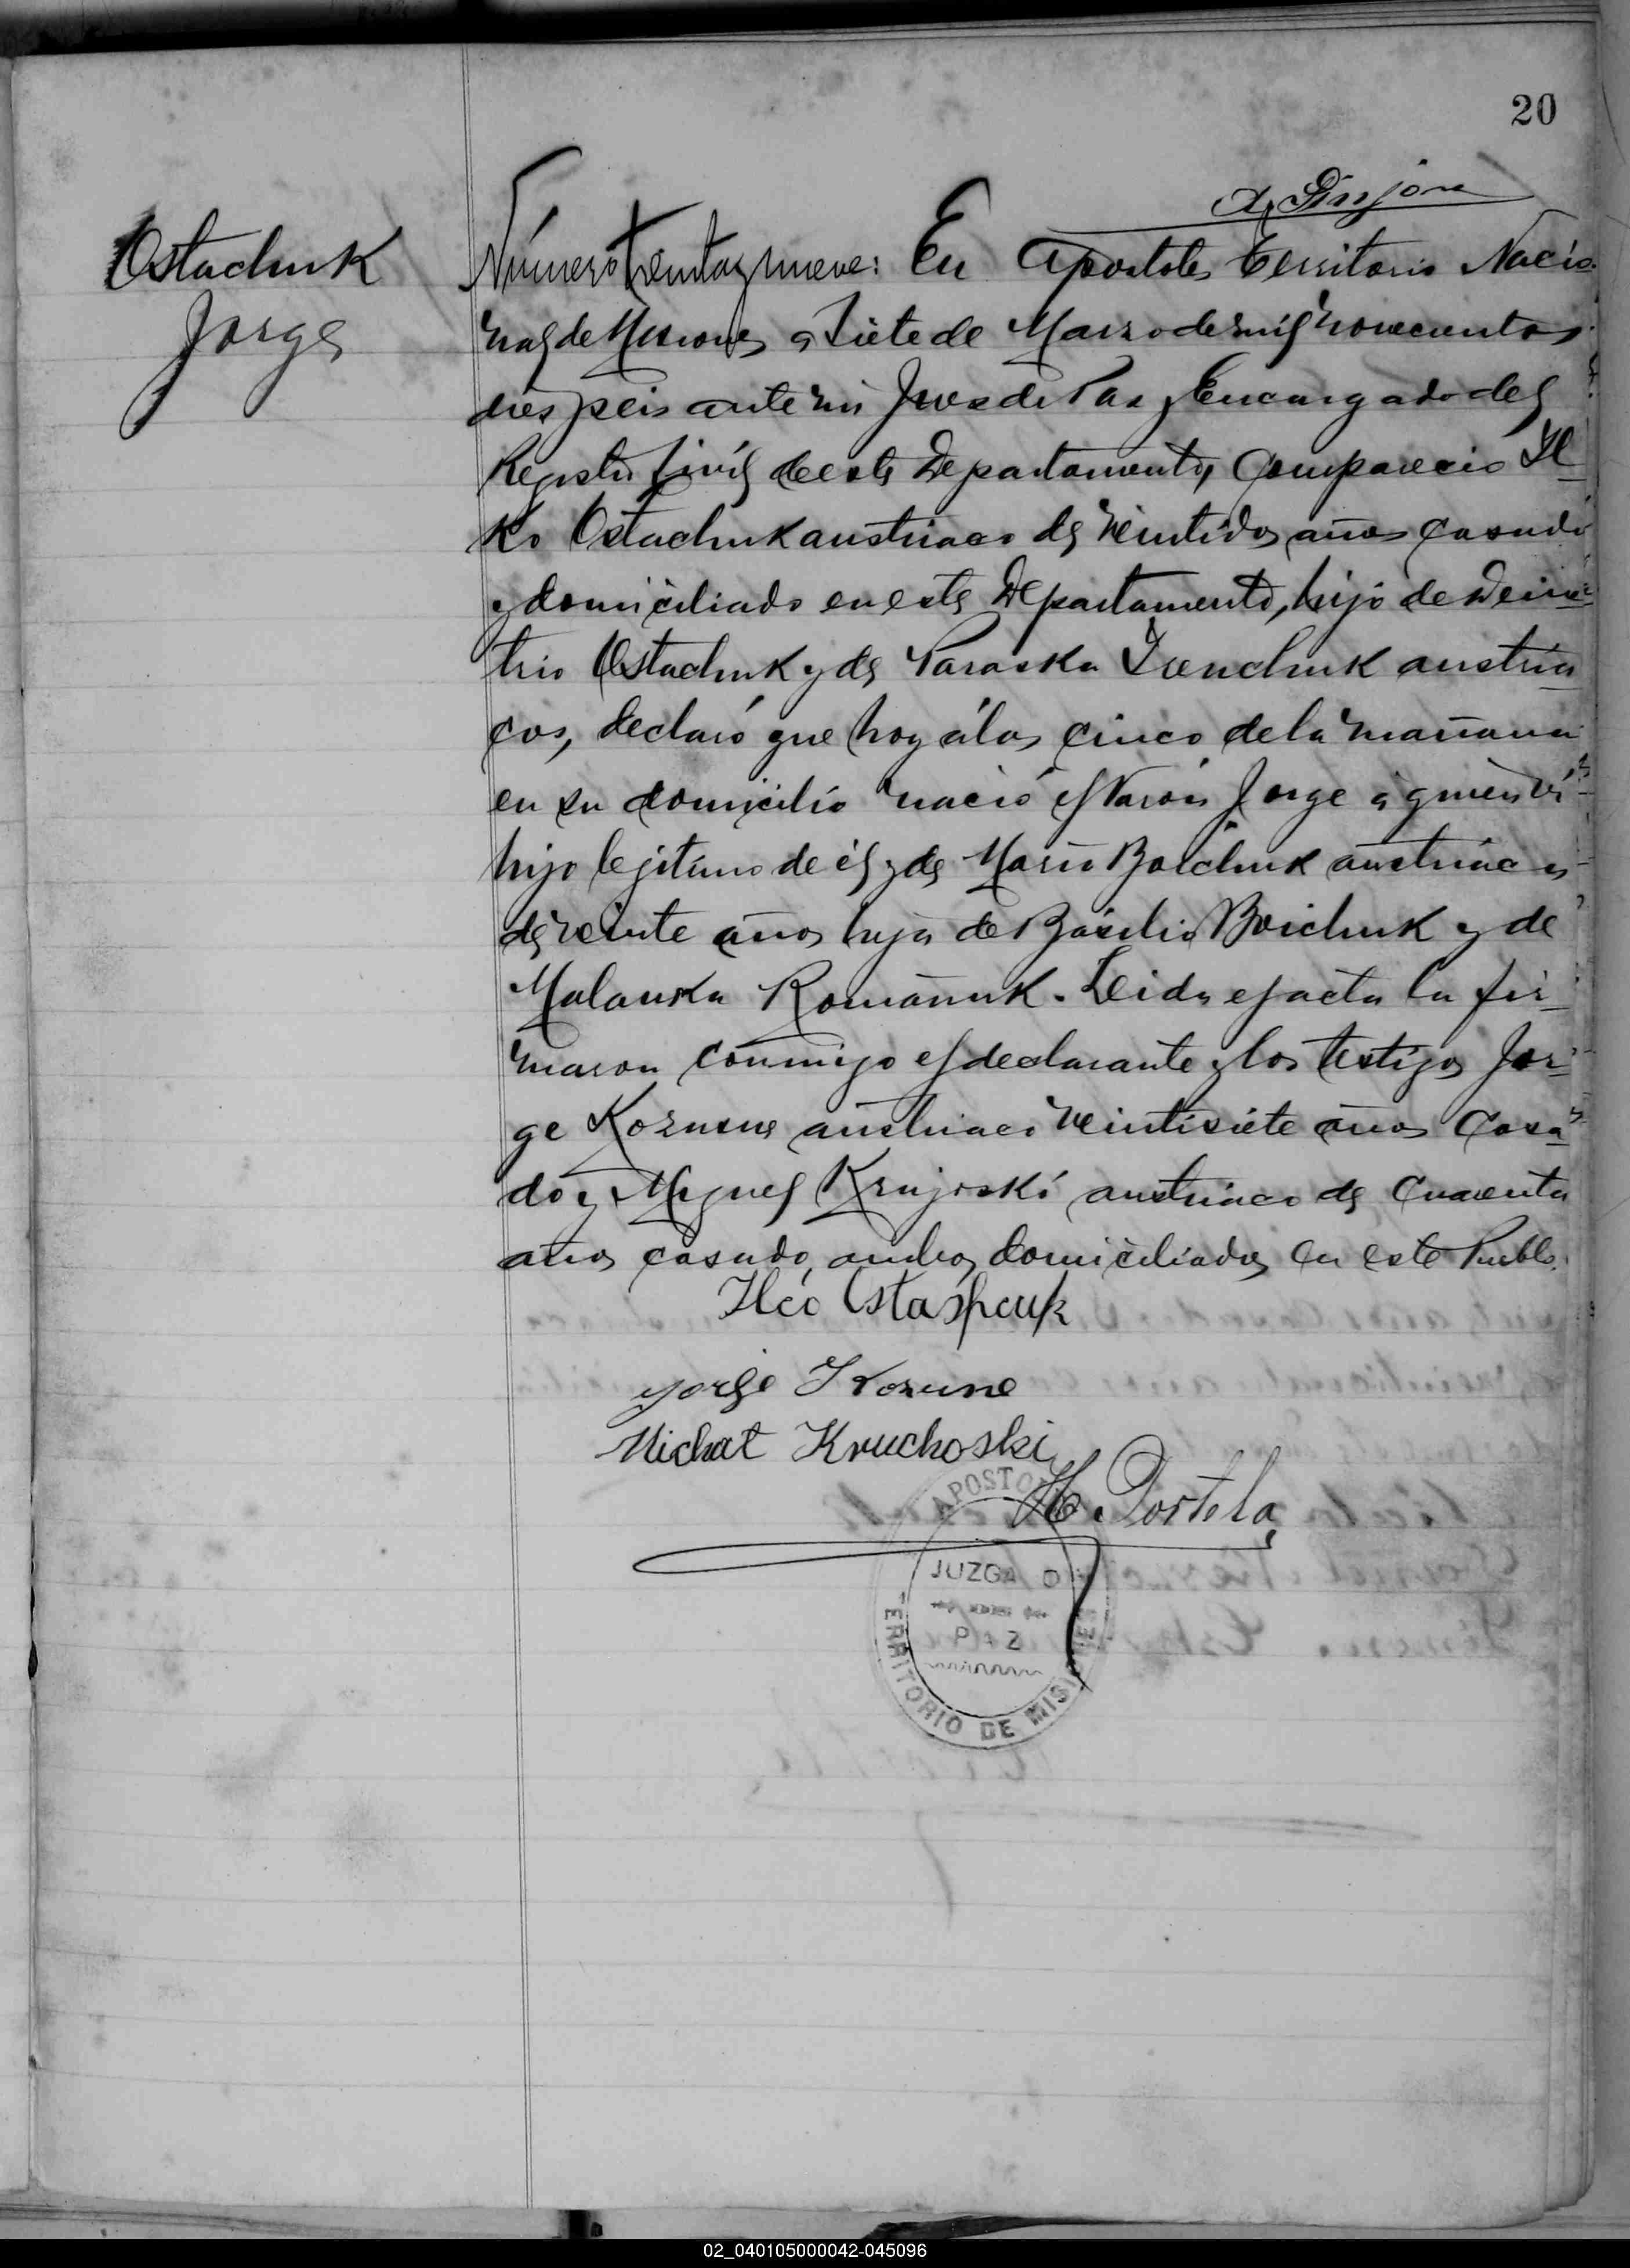 20
Ostachuk
Jorge
Número treinta y nueve: En Apostoles Territorio Nacio
nal de Misiones a siete de Marzo de mil novecientos
diesyseis ante mi Juez de Paz y Encargado del
Registro Civil de este Departamento, Comparecio Il
Ko Ostachuk austriaco de veintidos años casado
y domiciliado en este Departamento, hijo de Deme
trio Ostachuk y de Paraska austria
cos, declaró que hoy á las cinco de la mañana
en su domicilio nació el Varón Jorge a quien vi
hijo legitimo de él y de Maria Boichuk austriaca
de veinte años hija de Basilio Boichuk y de
Malanka Romañuk. Leida el acta la fir
maron conmigo el declarante y los testigos Jor
ge Kozusne austriaco veintisiete años Casa
do y Miguel Krujoski austriaco de Cuarenta
años casado, ambos domiciliados en este Pueblo.
Ilco Ostashcuk
Jorge Kozusne
Michat Kruchoski
H. Portela
APOSTO
JUZGA O
PAZ
TERRITORIO DE MISIONES
02_040105000042-045096